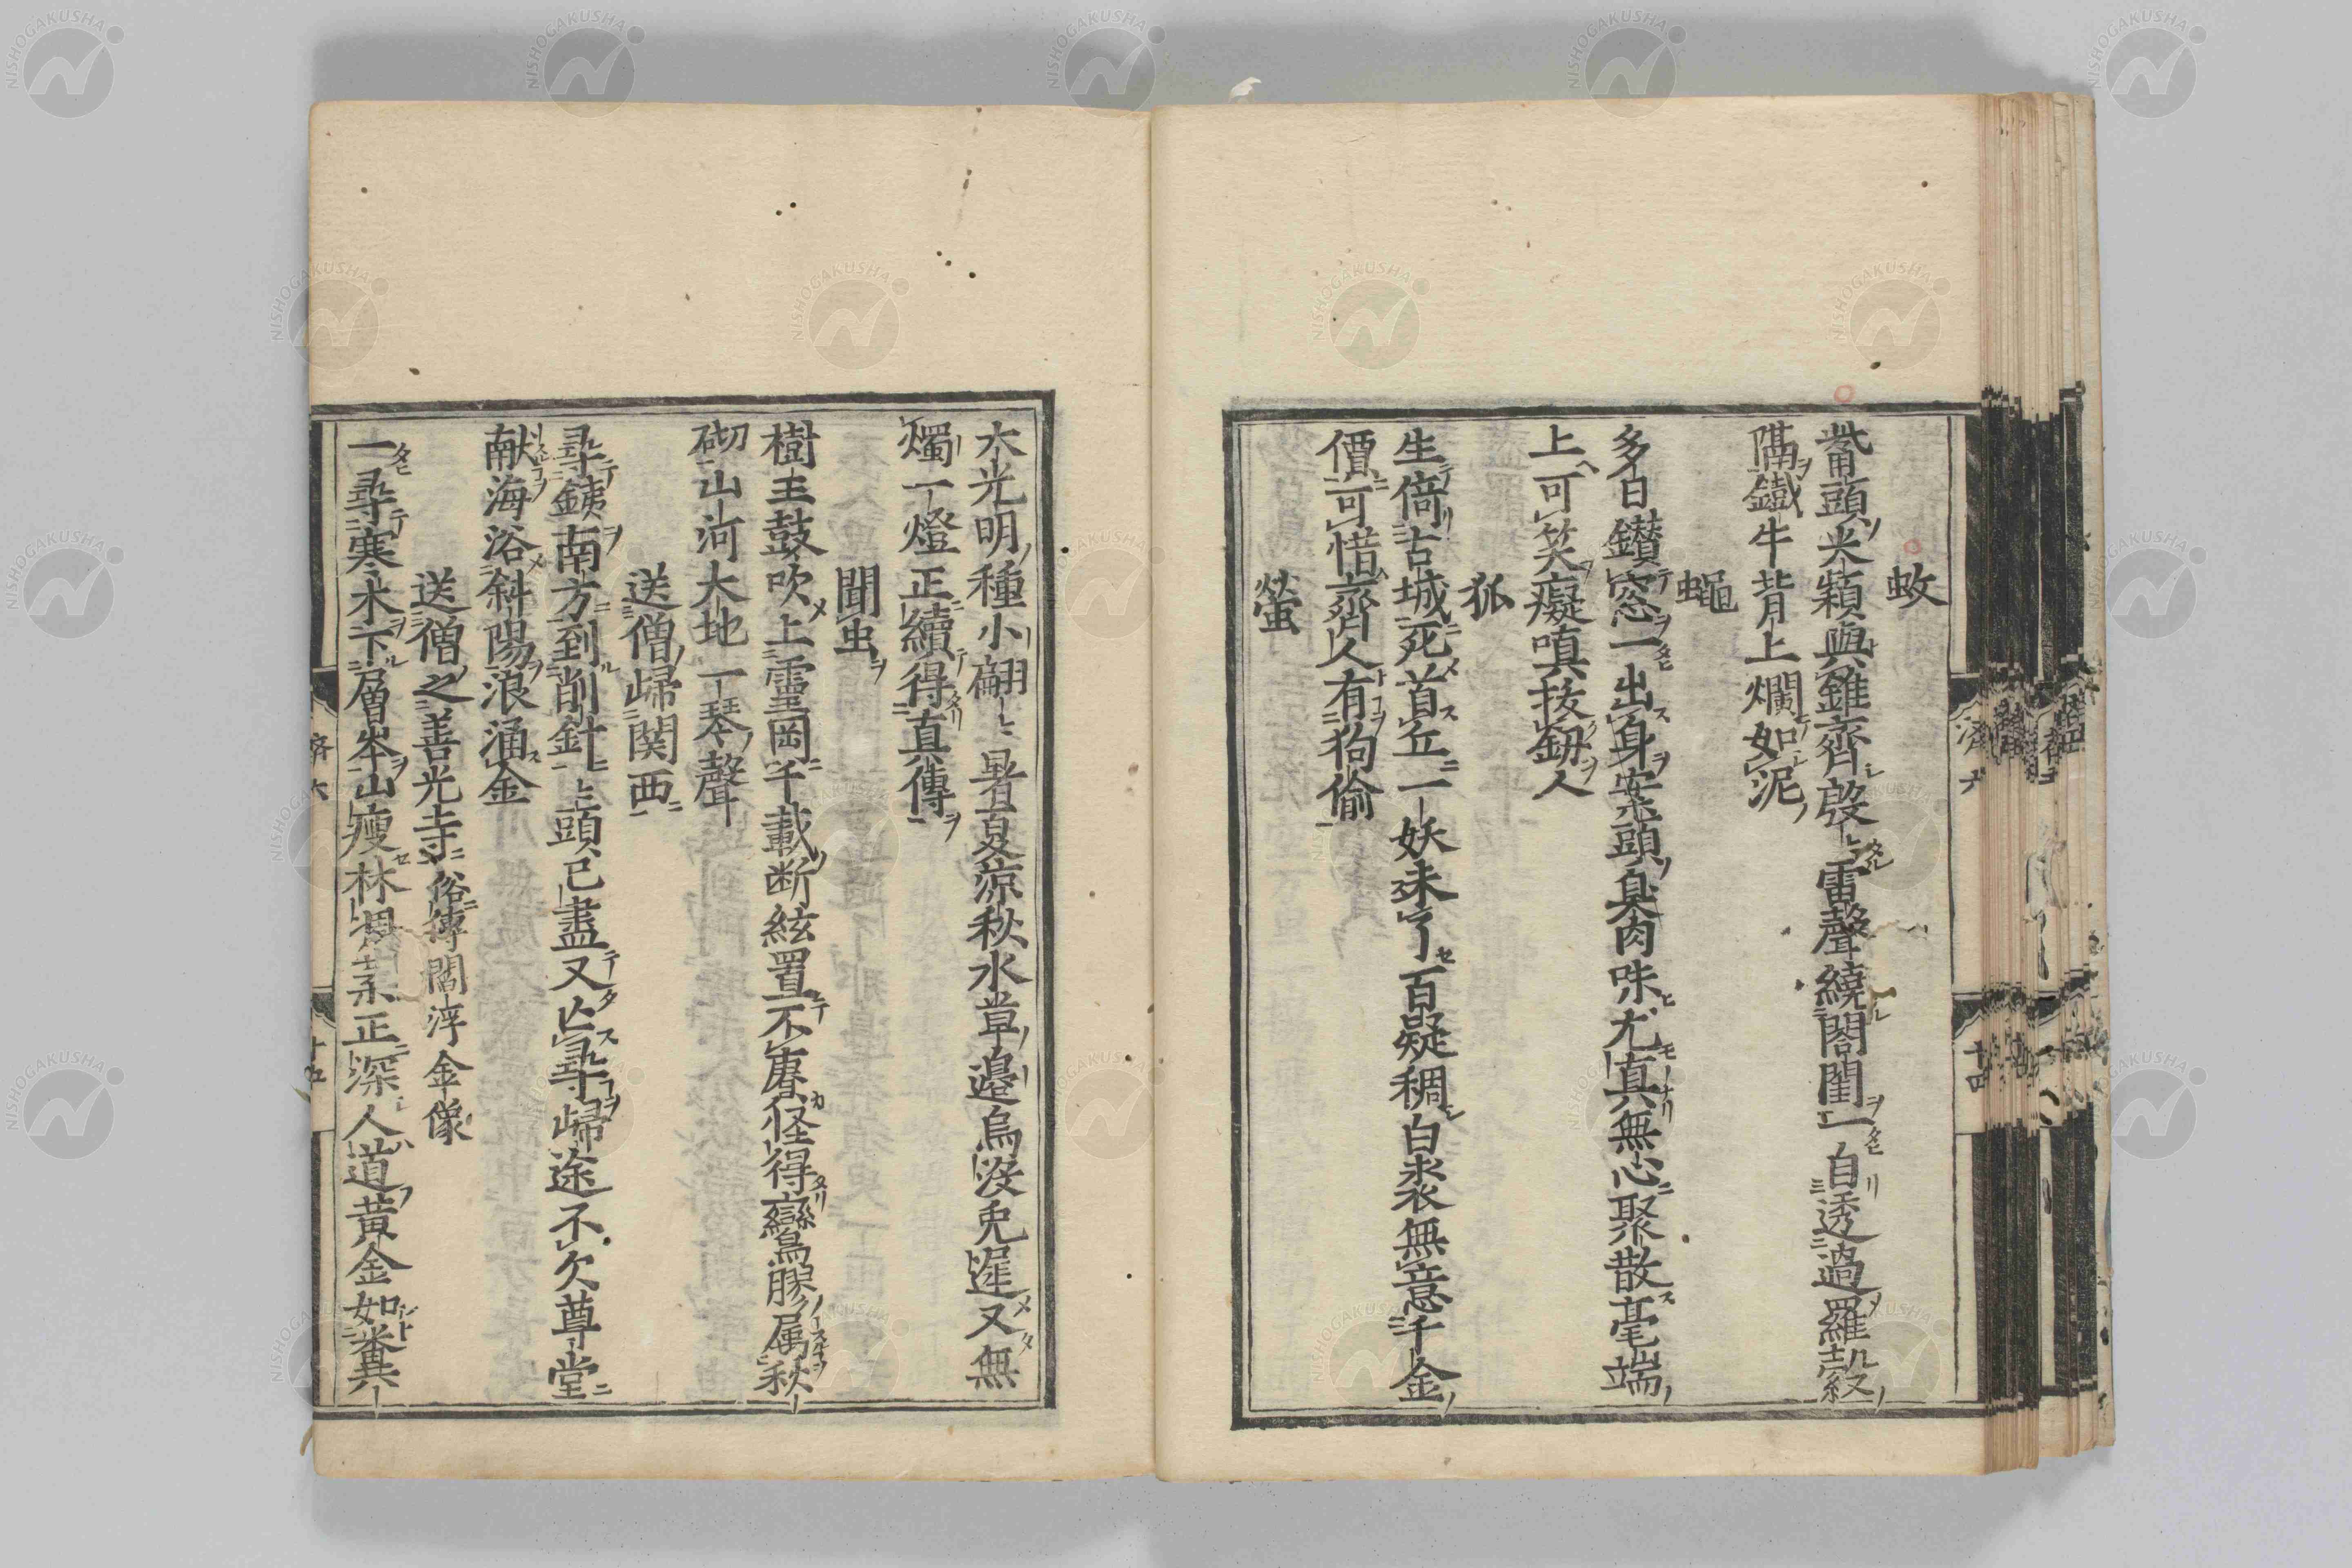 蚊
觜頭尖穎與錐齊殷〻雷聲繞閤閨一自透過羅縠
隔鐵牛背上爛如泥
蠅
多日鑚窓一出身案頭臭肉味尤真無心聚散毫端
上可笑癡嗔按劔人
狐
生倚古城死首丘一妖未了百疑稠白裘無意千金
價可惜齊人有狗偷
螢
大光明種小翩〻暑夏涼秋水草邉烏沒兎遲又無
燭一燈正續得真傳
聞虫
樹主鼓吹上靈岡千載断絃置不賡怪得鸞膠属秋
砌山河大地一琴聲
送僧歸関西
尋銕南方到削針〻頭已盡又亡尋歸途不欠尊堂
献海浴斜陽浪涌金
送僧之善光寺俗傳閻浮金像
一尋寒木下層岑山瘦林凋正深人道黄金如糞
濟六
十四
濟六
十五
NISHOGAKUSHA